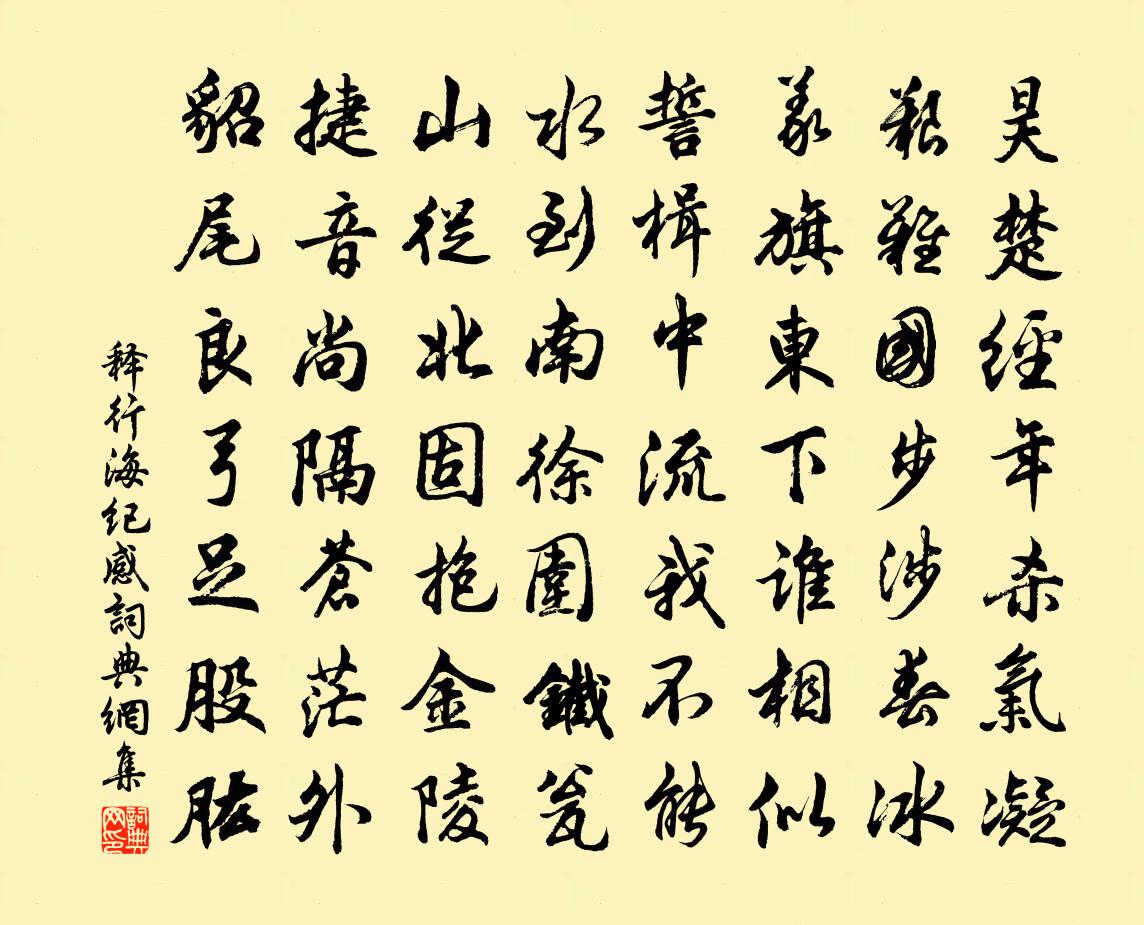 昊楚經年杀氣凝
艱難國步涉春冰
義旗東下誰相似
誓楫中流我不能
水到南徐圍鐵瓮
山從北固抱金陵
捷音尚隔蒼茫外
貂尾良弓足股肱
释行海纪感詞典網集
詞典网印